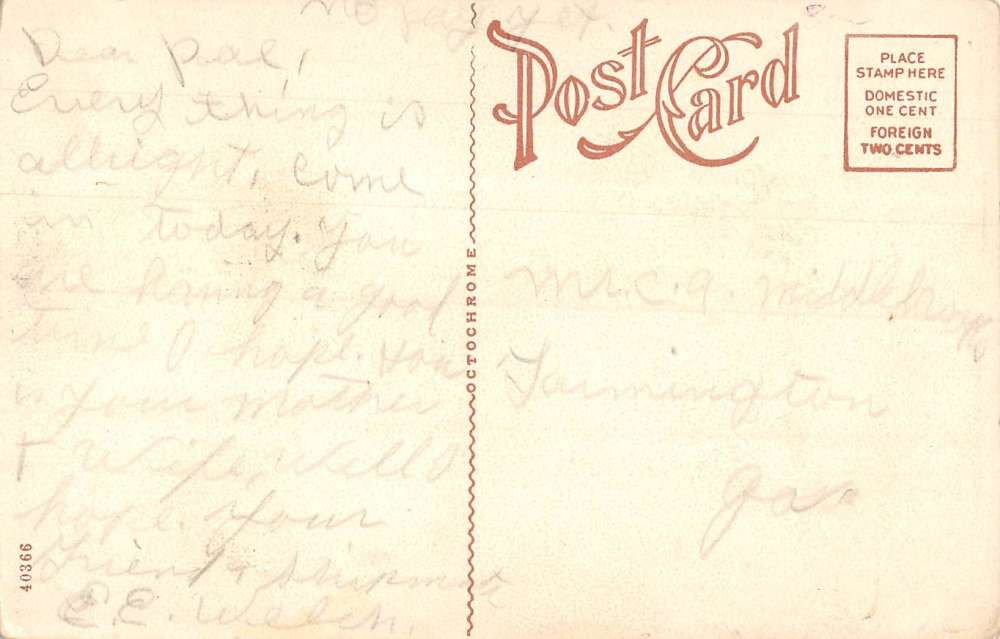 no pay yet.
Dear Pal,
Every thing is
allright, come
in today. You
are having a good
time I hope. How
is your mother
+ wife, well I
hope. Your
Friend + shipmate
E.E. Welch.
40366
OCTOCHROME
Post Card
PLACE
STAMP HERE
DOMESTIC
ONE CENT
FOREIGN
TWO CENTS
Mr. C. A. Middlebrooks
Farmington
Ga